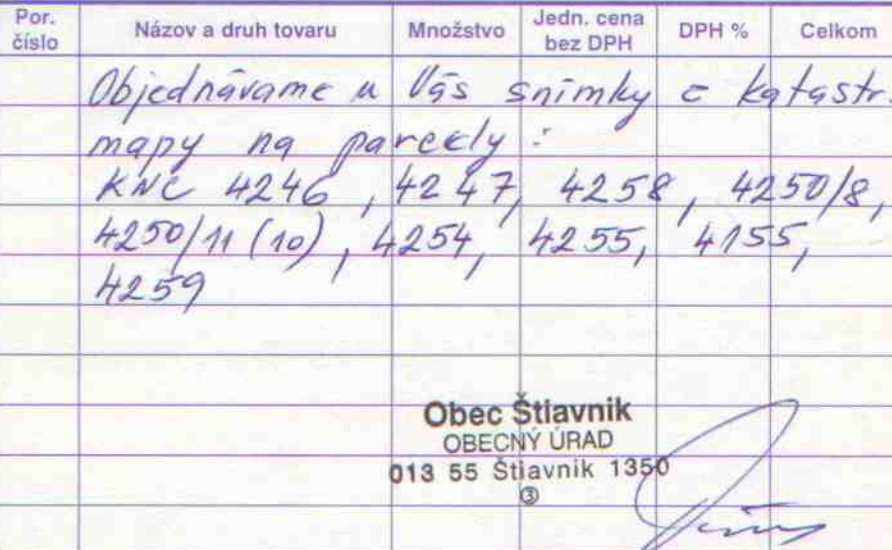 Por. číslo Názov a druh tovaru Množstvo Jedn. cena bez DPH DPH % Celkom
Objednávame u Vás snímky z katastr.
mapy na parcely :
KNC 4246, 4247, 4258, 4250/8,
4250/11 (10), 4254, 4255, 4155,
4259
Obec Štiavnik
OBECNÝ ÚRAD
013 55 Štiavnik 1350
③